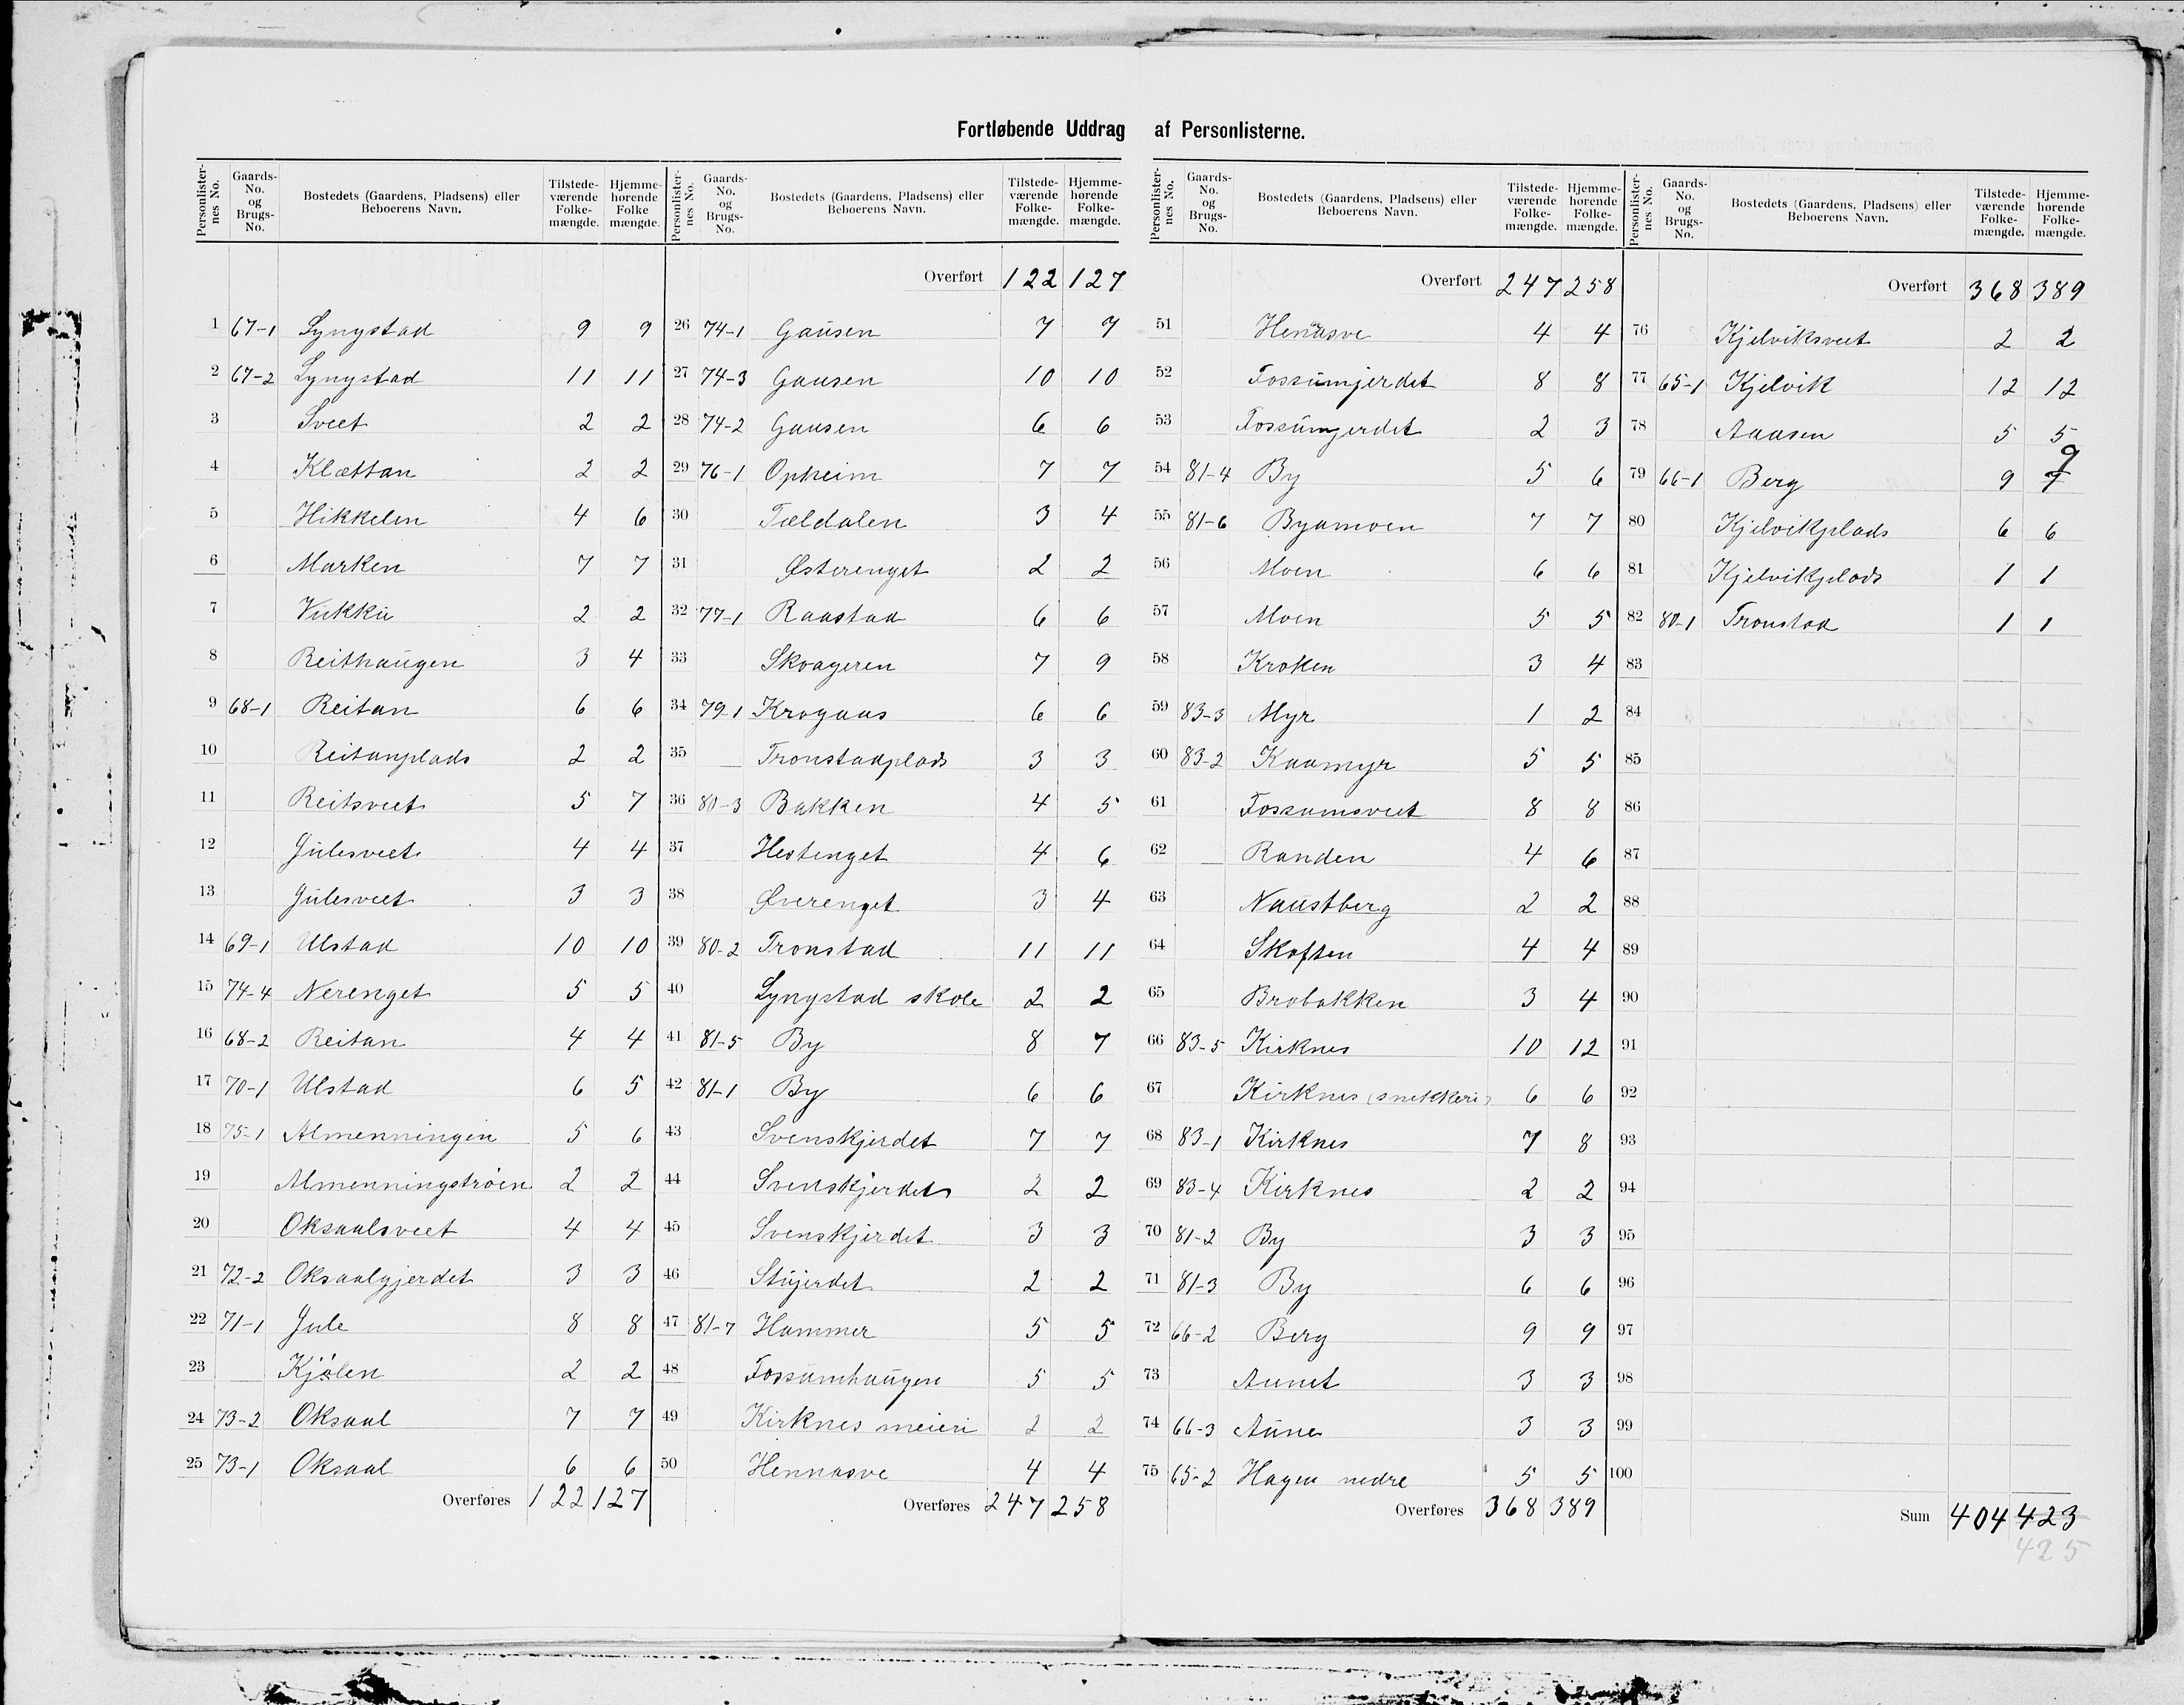 Fortløbende Uddrag af Personlisterne.
Personlister-nes No. | Gaards-No. og Brugs-No. | Bostedets (Gaardens, Pladsens) eller Beboerens Navn. | Tilstede-værende Folke-mængde. | Hjemme-hørende Folke mængde.
1 67-1 Lyngstad 9 9
2 67-2 Lyngstad 11 11
3 Sveet 2 2
4 Klættan 2 2
5 Hikkelen 4 6
6 Marken 7 7
7 Vukku 2 2
8 Reithaugen 3 4
9 68-1 Reitan 6 6
10 Reitanplads 2 2
11 Reitsveet 5 7
12 Julesveet 4 4
13 Julesveet 3 3
14 69-1 Ulstad 10 10
15 74-4 Nerenget 5 5
16 68-2 Reitan 4 4
17 70-1 Ulstad 6 5
18 75-1 Almenningen 5 6
19 Almenningstrøen 2 2
20 Oksaalsveet 4 4
21 72-2 Oksaalgjerdet 3 3
22 71-1 Jule 8 8
23 Kjølen 2 2
24 73-2 Oksaal 7 7
25 73-1 Oksaal 6 6
Overføres 122 127
Personlister-nes No. | Gaards-No. og Brugs-No. | Bostedets (Gaardens, Pladsens) eller Beboerens Navn. | Tilstede-værende Folke-mængde. | Hjemme-hørende Folke-mængde.
Overført 122 127
26 74-1 Gausen 7 7
27 74-3 Gausen 10 10
28 74-2 Gausen 6 6
29 76-1 Opheim 7 7
30 Tældalen 3 4
31 Østerenget 2 2
32 77-1 Raastad 6 6
33 Skvageren 7 9
34 79-1 Krogaas 6 6
35 Tronstadplads 3 3
36 80-3 Bakken 4 5
37 Hestenget 4 6
38 Øverenget 3 4
39 80-2 Tronstad 11 11
40 Lyngstad skole 2 2
41 81-5 By 8 7
42 81-1 By 6 6
43 Svenskjerdet 7 7
44 Svenskjerdet 2 2
45 Svenskjerdet 3 3
46 Stujerdet 2 2
47 81-7 Hammer 5 5
48 Fossumhaugen 5 5
49 Kirknes meieri 2 2
50 Hennasve 4 4
Overføres 247 258
Personlister-nes No. | Gaards-No. og Brugs-No. | Bostedets (Gaardens, Pladsens) eller Beboerens Navn. | Tilstede-værende Folke-mængde. | Hjemme-hørende Folke-mængde.
Overført 247 258
51 Henasve 4 4
52 Fossumjerdet 8 8
53 Fossumjerdet 2 3
54 81-4 By 5 6
55 81-6 Byamoen 7 7
56 Moen 6 6
57 Moen 5 5
58 Kroken 3 4
59 83-3 Myr 1 2
60 83-2 Kaamyr 5 5
61 Fossumsveet 8 8
62 Randen 4 6
63 Naustberg 2 2
64 Skoften 4 4
65 Brobakken 3 4
66 83-5 Kirknes 10 12
67 Kirknes (snekkeri) 6 6
68 83-1 Kirknes 7 8
69 83-4 Kirknes 2 2
70 81-2 By 3 3
71 81-3 By 6 6
72 66-2 Berg 9 9
73 Aunet 3 3
74 66-3 Aune 3 3
75 65-2 Hagen nedre 5 5
Overføres 368 389
Personlister-nes No. | Gaards-No. og Brugs-No. | Bostedets (Gaardens, Pladsens) eller Beboerens Navn. | Tilstede-værende Folke-mængde. | Hjemme-hørende Folke-mængde.
Overført 368 389
76 Kjelviksveet 2 2
77 65-1 Kjelvik 12 12
78 Aaasen 5 5
79 66-1 Berg 9 7 9
80 Kjelvikplads 6 6
81 Kjelvikplads 1 1
82 80-1 Tronstad 1 1
83
84
85
86
87
88
89
90
91
92
93
94
95
96
97
98
99
100
Sum 404 423
425